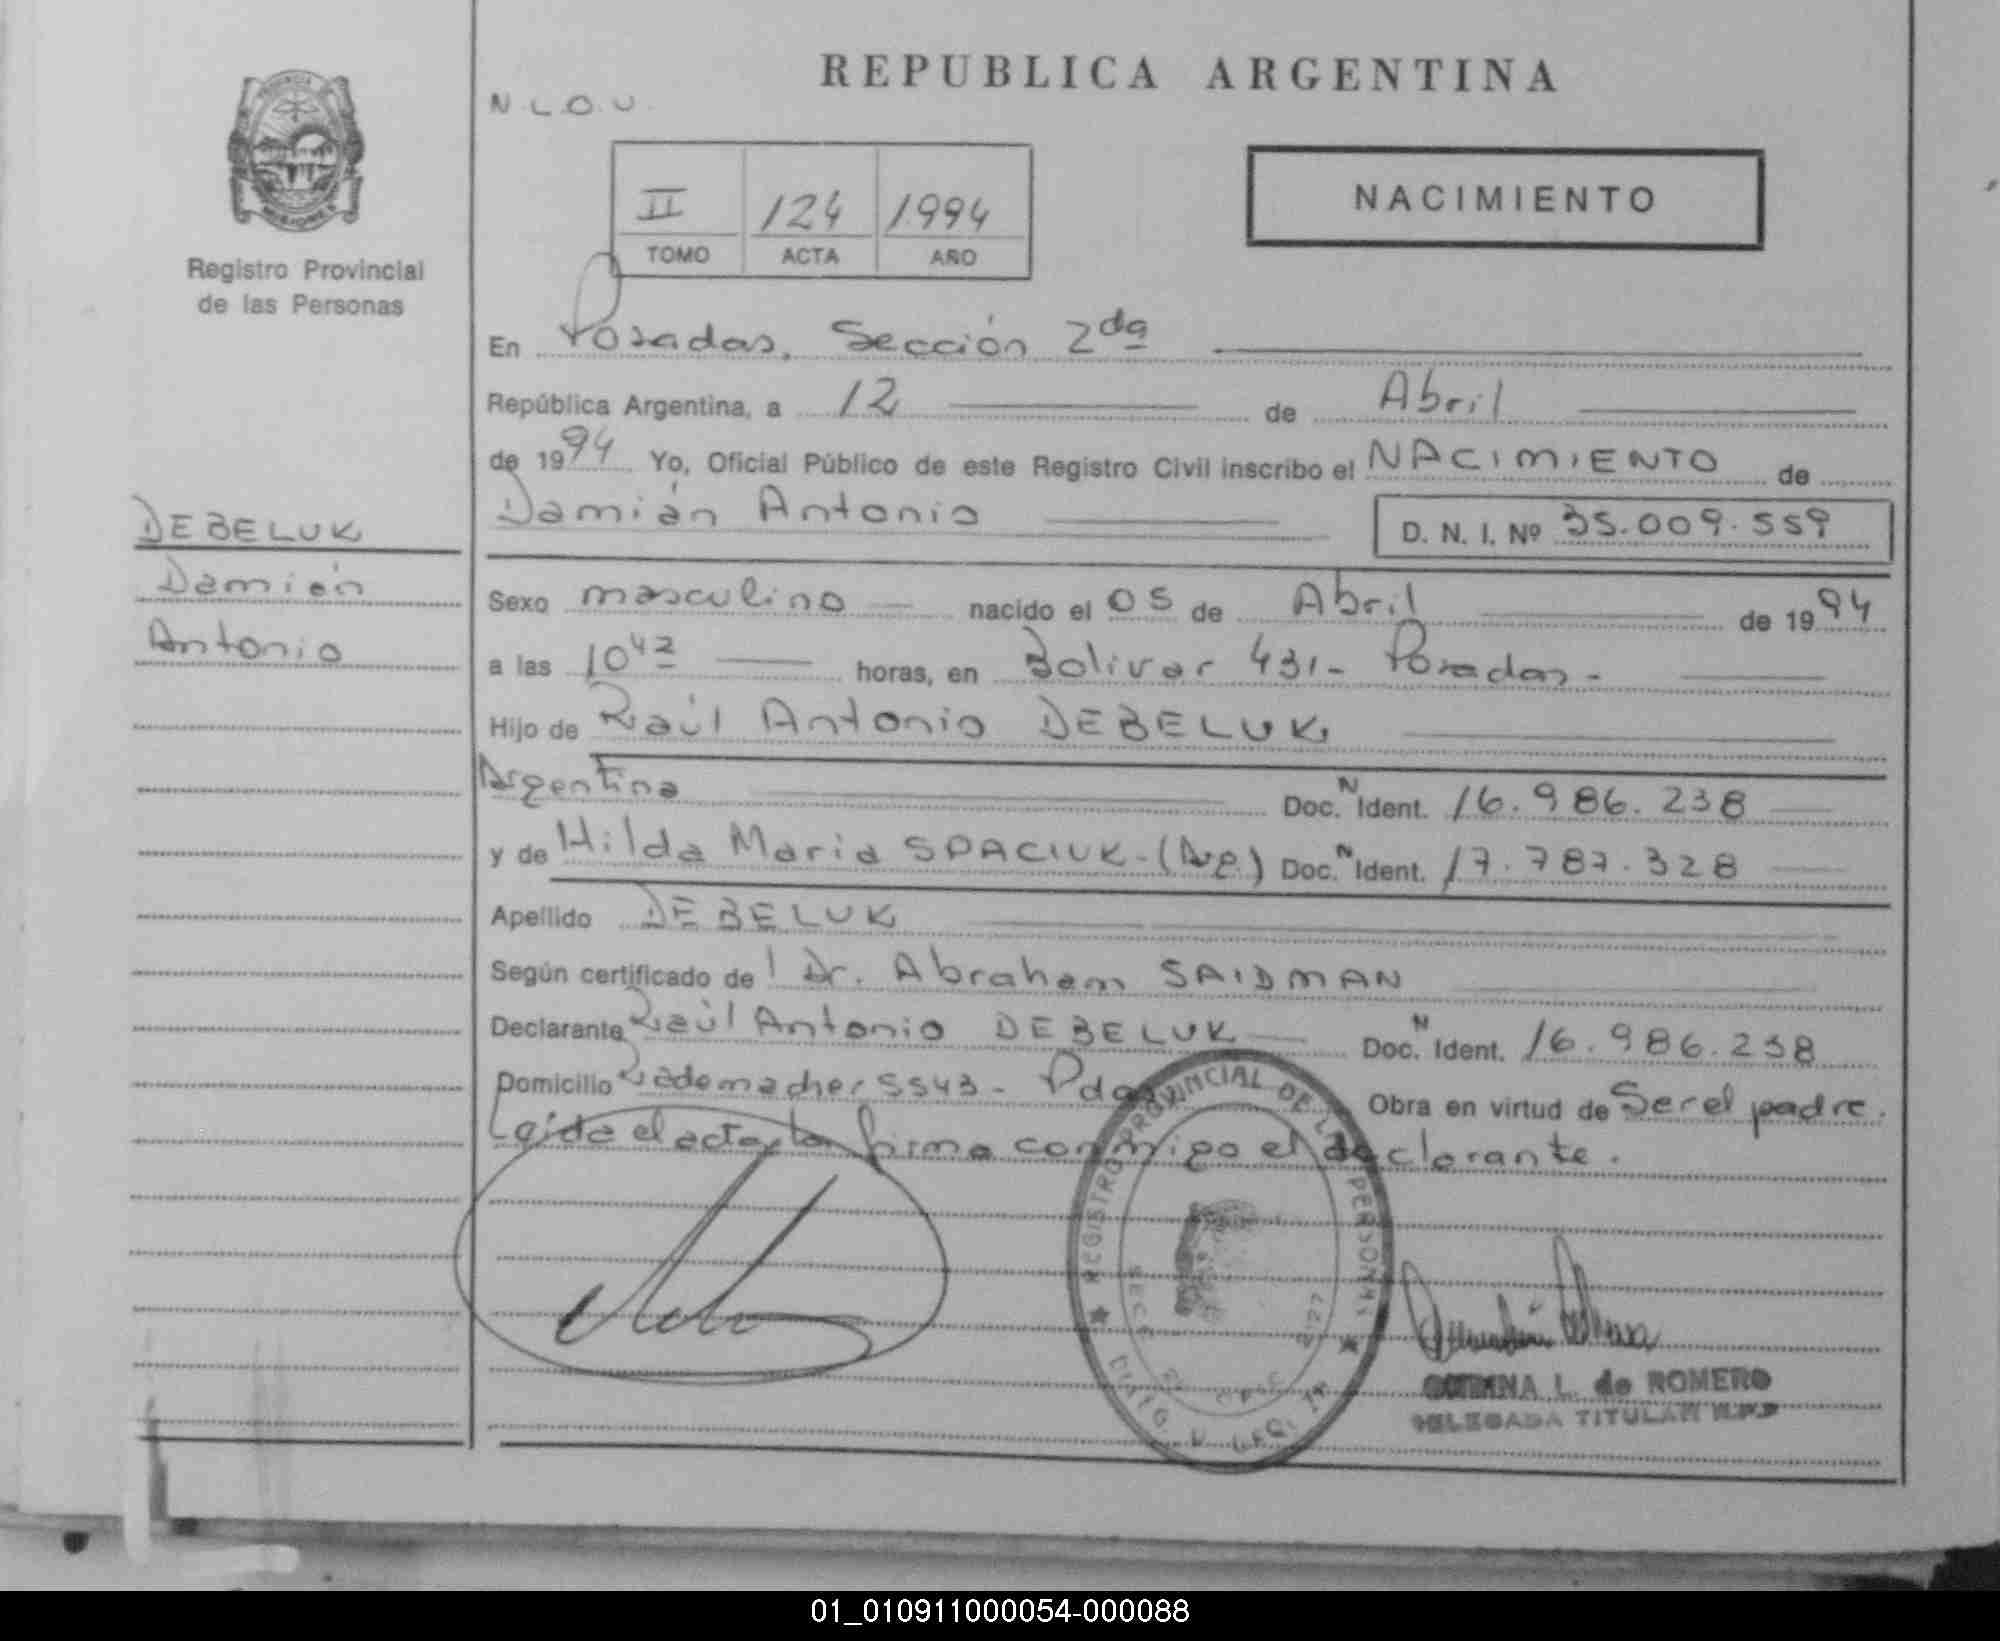 REPUBLICA ARGENTINA
N L.O.U.
NACIMIENTO
II 124 1994
TOMO ACTA AÑO
Registro Provincial
de las Personas
En Posadas, Sección 2da
República Argentina, a 12 de Abril
de 1994 Yo, Oficial Público de este Registro Civil inscribo el NACIMIENTO de
Damián Antonio D. N. I. Nº 35.009.559
DEBELUK
Damián
Antonio
Sexo masculino nacido el 05 de Abril de 1994
a las 10 42 horas, en Bolivar 431- Posadas-
Hijo de Raúl Antonio DEBELUK
Argentina Doc. N Ident. 16.986.238
y de Hilda Maria SPACIUK-(Arg.) Doc. N Ident. 17.787.328
Apellido DEBELUK
Según certificado de Dr. Abraham SAIDMAN
Declarante Raúl Antonio DEBELUK Doc. N Ident. 16.986.238
Domicilio Rademacher 5543- Pdas Obra en virtud de Ser el padre.
Leida el acta la firma conmigo el declarante.
REGISTRO PROVINCIAL DE LAS PERSONAS
L. de ROMERO
DELEGADA TITULAR
01_010911000054-000088